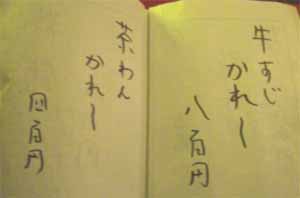 牛すじ
かれー
八百円
茶わん
かれー
四百円